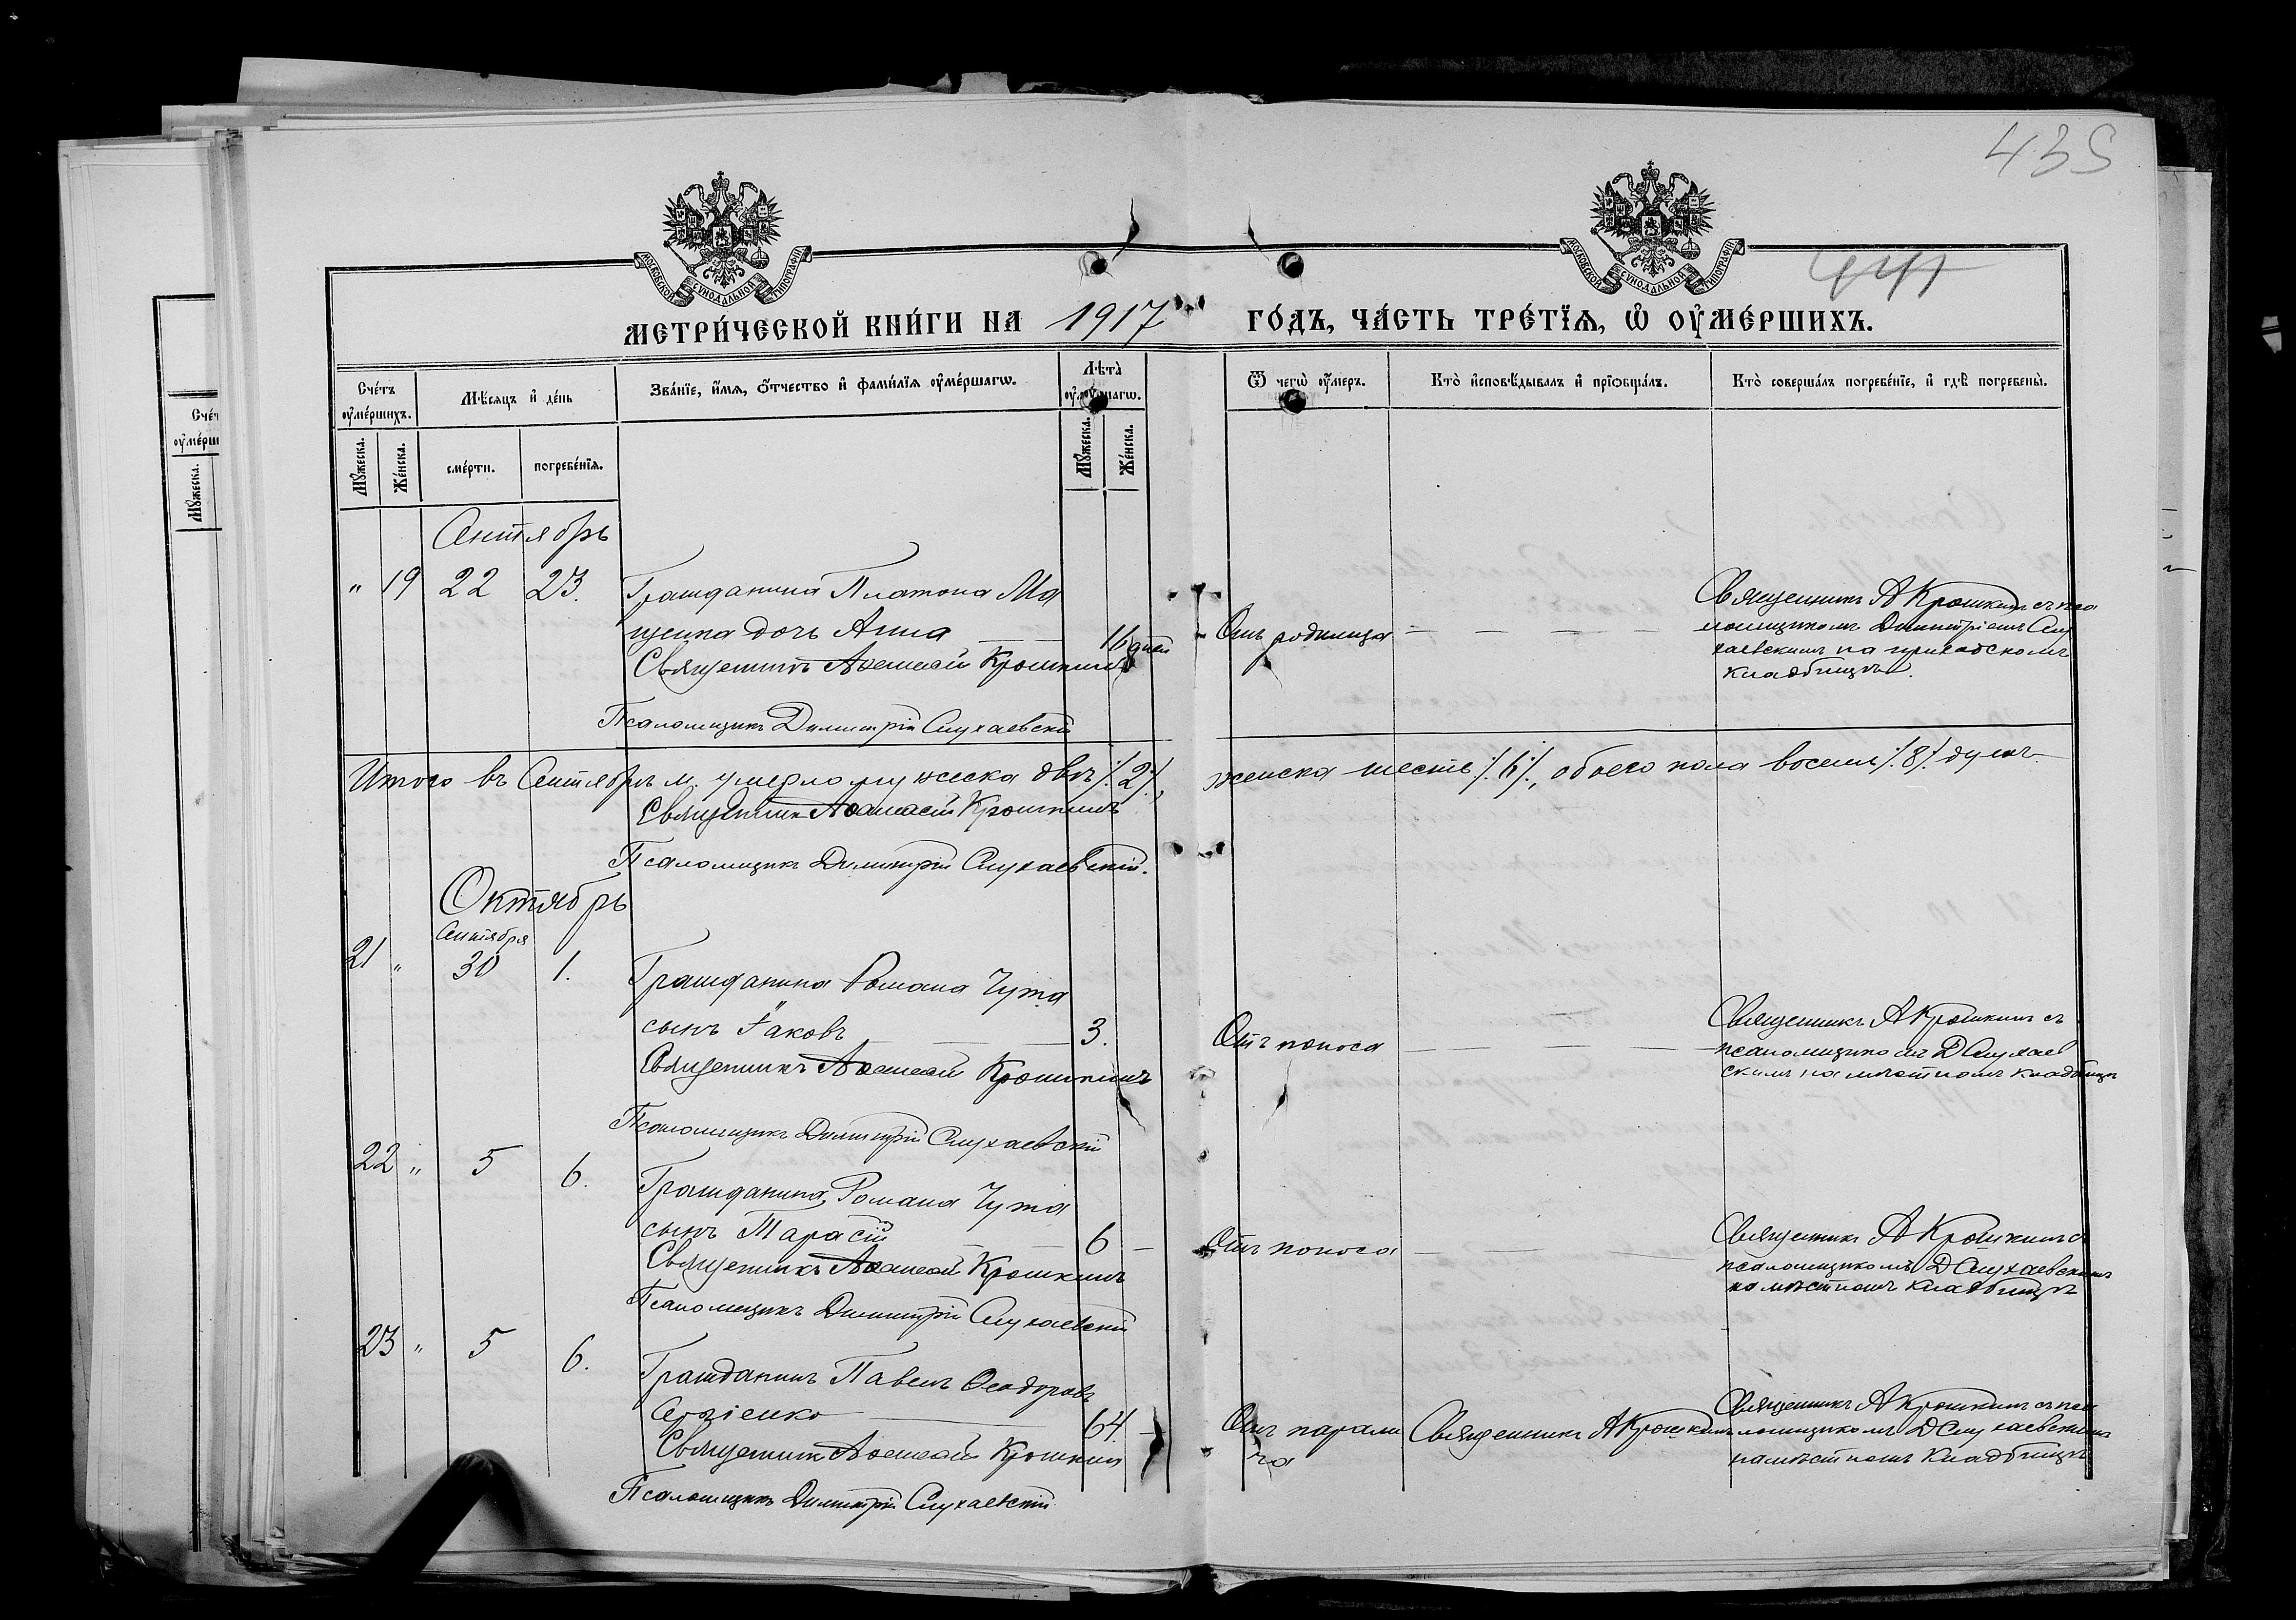 435
МОСКОВСКОЙ СѴНОДАЛЬНОЙ ТИПОГРАФІИ
МОСКОВСКОЙ СѴНОДАЛЬНОЙ ТИПОГРАФІИ
МЕТРИ́ЧЕСКОЙ КНИ́ГИ НА 1917 ГО́ДЪ, ЧА́СТЬ ТРЕ́ТЇѦ, Ѡ҆ ОУ҆МЕ́РШИХЪ.
Сче́тъ оу҆ме́ршихъ.
Мѣ́сѧцъ и҆ де́нь
Зва́нїе, и҆́мѧ, ѻ҆́тчество и҆ фами́лїѧ оу҆ме́ршагѡ.
Лѣ́та
Ѿ чегѡ̀ оу҆́меръ.
Кто̀ и҆сповѣ́дывалъ и҆ прїѡбща́лъ.
Кто̀ соверша́лъ погребе́нїе, и҆ гдѣ̀ погребены̀.
Мꙋ́жеска.
Же́нска.
сме́рти.
погребе́нїѧ.
Мꙋ́жеска.
Же́нска.
Сентябрь
" 19 22 23. Гражданина Платона Ма
щенка дочь Анна 16 дней
Священникъ Аѳанасій Крошкинъ
Псаломщикъ Димитрій Слухаевскій
Отъ родимца
Священникъ А Крошкинъ съ пса
ломщикомъ Димитріемъ Слу
хаевскимъ на приходскомъ
кладбищѣ.
Итого въ Сентябрѣ м. умерло мужеска два /.2/., женска шесть /.6/., обоего пола восемь /.8/. душъ.
Священникъ Аѳанасій Крошкинъ
Псаломщикъ Димитрій Слухаевскій.
Октябрь
Сентября
21 " 30 1. Гражданина Романа Чужа
сынъ Іаковъ 3.
Священникъ Аѳанасій Крошкинъ
Псаломщикъ Димитрій Слухаевскій
Отъ поноса
Священникъ А Крошкинъ съ
псаломщикомъ Д Слухаев
скимъ на мѣстномъ кладбищѣ
22 " 5 6. Гражданина Романа Чужа
сынъ Тарасій 6
Священникъ Аѳанасій Крошкинъ
Псаломщикъ Димитрій Слухаевскій
Отъ поноса
Священникъ А Крошкинъ съ
псаломщикомъ Д Слухаевскимъ
на мѣстномъ кладбищѣ
23 " 5 6. Гражданинъ Павелъ Ѳеодоровъ
Сергіенко 64.
Священникъ Аѳанасій Крошкинъ
Псаломщикъ Димитрій Слухаевскій
Отъ парали
ча
Священникъ А Крошкинъ
Священникъ А Крошкинъ съ пса
ломщикомъ Д Слухаевскимъ
на мѣстномъ кладбищѣ